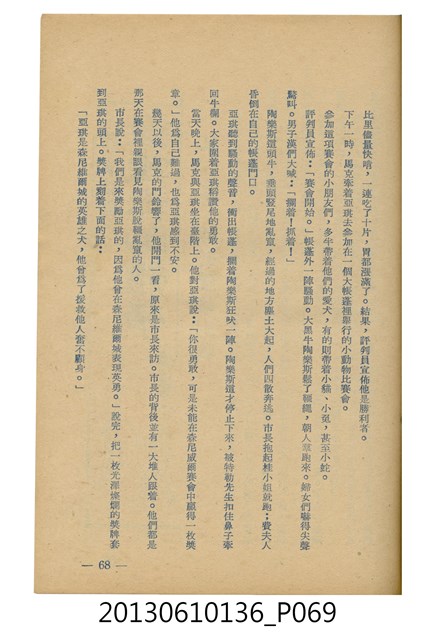 比里儘量快啃，一連吃了十片，胃都漲滿了。結果，評判員宣佈他是勝利者。
下午一時，馬克牽着亞琪去參加在一個大帳蓬裡舉行的小動物比賽會。
參加這項賽會的小朋友們，多半帶着他們的愛犬，有的則帶着小貓、小兎，甚至小蛇。
評判員宣佈：「賽會開始。」帳蓬外一陣騷動。大黑牛陶樂斯鬆了韁繩，朝人羣跑來。婦女們嚇得尖聲
驚叫。男子漢們大喊：「攔着！抓着！」
陶樂斯這頭牛，垂頭竪尾地亂竄，經過的地方塵土大起，人們四散奔逃。市長抱起桂小姐就跑；費夫人
昏倒在自己的帳蓬門口。
亞琪聽到騷動的聲音，衝出帳蓬，攔着陶樂斯狂吠一陣。陶樂斯這才停止下來，被特勒先生扣住鼻子牽
回牛欄。大家圍着亞琪稱讚他的勇敢。
當天晚上，馬克與亞琪坐在臺階上。他對亞琪說：「你很勇敢，可是未能在森尼威爾賽會中贏得一枚獎
章。」他爲自己難過，也爲亞琪感到不安。
幾天以後，馬克的門鈴響了，他開門一看，原來是市長來訪。市長的背後並有一大堆人跟着。他們都是
那天在賽會裡親眼看見陶樂斯亂竄的人。
市長說：「我們是來獎勵亞琪的，因爲他曾在森尼維爾城表現英勇。」說完，把一枚光澤燦爛的獎牌套
到亞琪的頭上。獎牌上刻着下面的話：
「亞琪是森尼維爾城的英雄之犬，他曾爲了援救他人奮不顧身。」
— 68 —
20130610136_P069